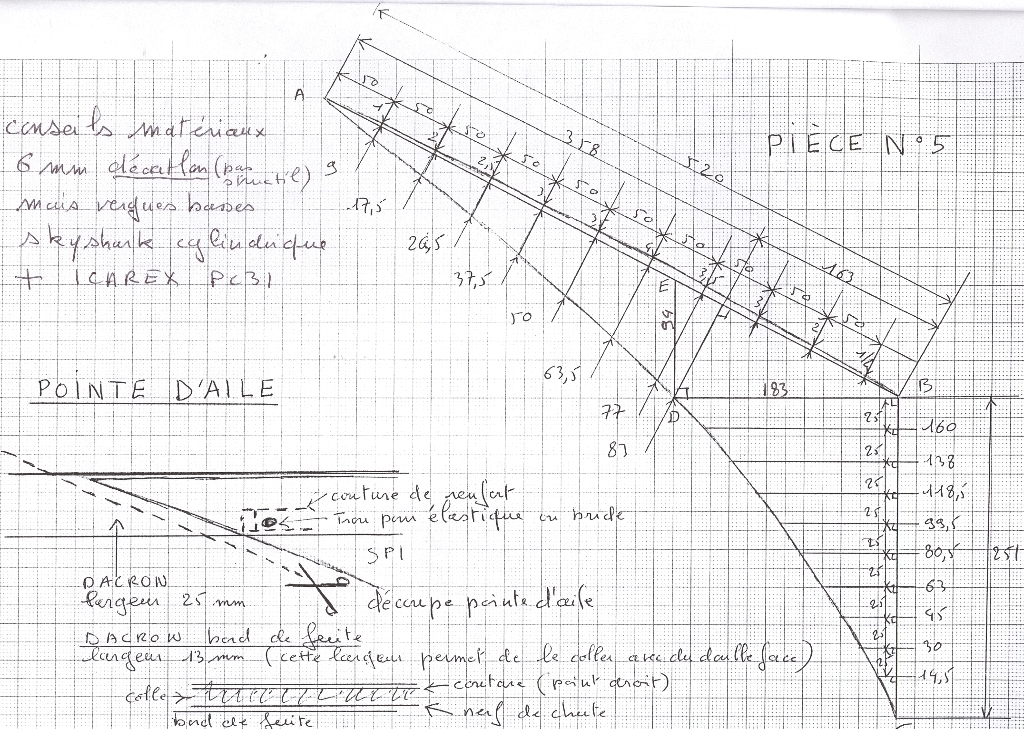 PIÈCE N°5
conseils matériaux
6 mm décatlon (pas structil)
mais vergues basses
skyshark cylindrique
+ ICAREX PC31
A
50
50
50
50
50
50
50
50
50
50
358
520
163
1
2
2,5
3
3
4
3,5
3
2
1/2
9
17,5
26,5
37,5
50
63,5
77
83
E
94
D
183
B
25
25
25
25
25
25
25
25
25
160
138
118,5
99,5
80,5
63
45
30
14,5
251
POINTE D'AILE
couture de renfort
Trou pour élastique ou bride
SPI
DACRON
largeur 25 mm
découpe pointe d'aile
DACRON bord de fuite
largeur 13 mm (cette largeur permet de le coller avec du double face)
colle
couture (point droit)
nerf de chute
bord de fuite